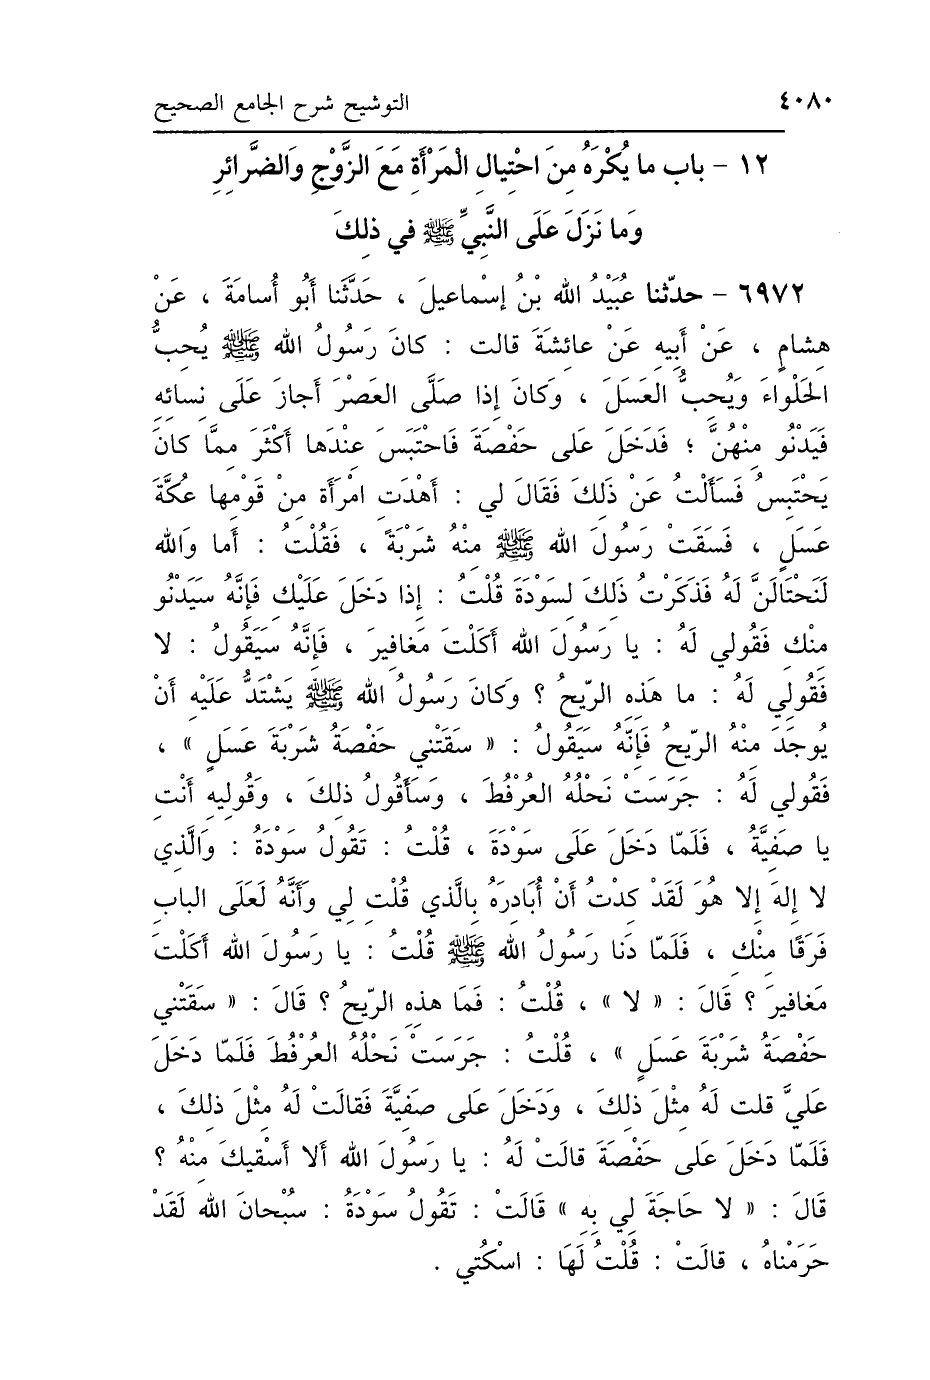 ٤٠٨٠ التوشيح شرح الجامع الصحيح
١٢ - باب ما يُكْرَهُ مِنَ احْتِيالِ الْمَرْأَةِ مَعَ الزَّوْجِ وَالضَّرائِرِ
وَما نَزَلَ عَلَى النَّبِيِّ ﷺ في ذلِكَ
٦٩٧٢ - حدّثنا عُبَيْدُ الله بْنُ إسْماعيلَ ، حَدَّثَنا أَبُو أُسامَةَ ، عَنْ
هِشامٍ ، عَنْ أَبِيهِ عَنْ عائِشَةَ قالت : كانَ رَسُولُ الله ﷺ يُحِبُّ
الحَلْواءَ وَيُحِبُّ العَسَلَ ، وَكَانَ إذا صَلَّى العَصْرَ أَجازَ عَلَى نِسائِهِ
فَيَدْنُو مِنْهُنَّ ؛ فَدَخَلَ عَلى حَفْصَةَ فَاحْتَبَسَ عِنْدَها أَكْثَرَ مِمَّا كانَ
يَحْتَبِسُ فَسَأَلْتُ عَنْ ذَلِكَ فَقَالَ لي : أَهْدَتِ امْرَأَة مِنْ قَوْمِها عكَّةَ
عَسَلٍ ، فَسَقَتْ رَسُولَ الله ﷺ مِنْهُ شَرْبَةً ، فَقُلْتُ : أما وَالله
لَنَحْتَالَنَّ لَهُ فَذَكَرْتُ ذَلِكَ لِسَوْدَةَ قُلْتُ : إذا دَخَلَ عَلَيْكِ فَإنَّهُ سَيَدْنُو
مِنْكِ فَقُولي لَهُ : يا رَسُولَ الله أَكَلْتَ مَغافِيرَ ، فَإنَّهُ سَيَقُولُ : لا
فَقُولي لَهُ : ما هَذِهِ الرّيحُ ؟ وَكانَ رَسُولُ الله ﷺ يَشْتَدُّ عَلَيْهِ أَنْ
يُوجَدَ مِنْهُ الرّيحُ فَإنَّهُ سَيَقُولُ : « سَقَتْني حَفْصَةُ شَرْبَةَ عَسَلٍ » ،
فَقُولي لَهُ : جَرَسَتْ نَحْلُهُ العُرْفُطَ ، وَسَأَقُولُ ذلِكَ ، وَقُوليهِ أَنْتِ
يا صَفِيَّةُ ، فَلَمّا دَخَلَ عَلَى سَوْدَةَ ، قُلْتُ : تَقُولُ سَوْدَةُ : وَالَّذي
لا إلهَ إلا هُوَ لَقَدْ كِدْتُ أَنْ أُبَادِرَهُ بِالَّذي قُلْتِ لي وَأَنَّهُ لَعَلَى البابِ
فَرَقًا مِنْكِ ، فَلَمّا دَنا رَسُولُ الله ﷺ قُلْتُ : يا رَسُولَ الله أَكَلْتَ
مَغافيرَ ؟ قَالَ : « لا » ، قُلْتُ : فَمَا هذهِ الرّيحُ ؟ قَالَ : « سَقَتْني
حَفْصَةُ شَرْبَةَ عَسَلٍ » ، قُلْتُ : جَرَسَتْ نَحْلُهُ العُرْفُطَ فَلَمّا دَخَلَ
عَليَّ قلت لَهُ مِثْلَ ذلِكَ ، وَدَخَلَ عَلى صَفِيَّةَ فَقالَتْ لَهُ مِثْلَ ذلِكَ ،
فَلَمّا دَخَلَ عَلى حَفْصَةَ قالَتْ لَهُ : يا رَسُولَ الله ألا أَسْقيكَ مِنْهُ ؟
قَالَ : « لا حَاجَةَ لِي بِهِ » قَالَتْ : تَقُولُ سَوْدَةُ : سُبْحانَ الله لَقَدْ
حَرَمْناهُ ، قالَتْ : قُلْتُ لَهَا : اسْكُتي .